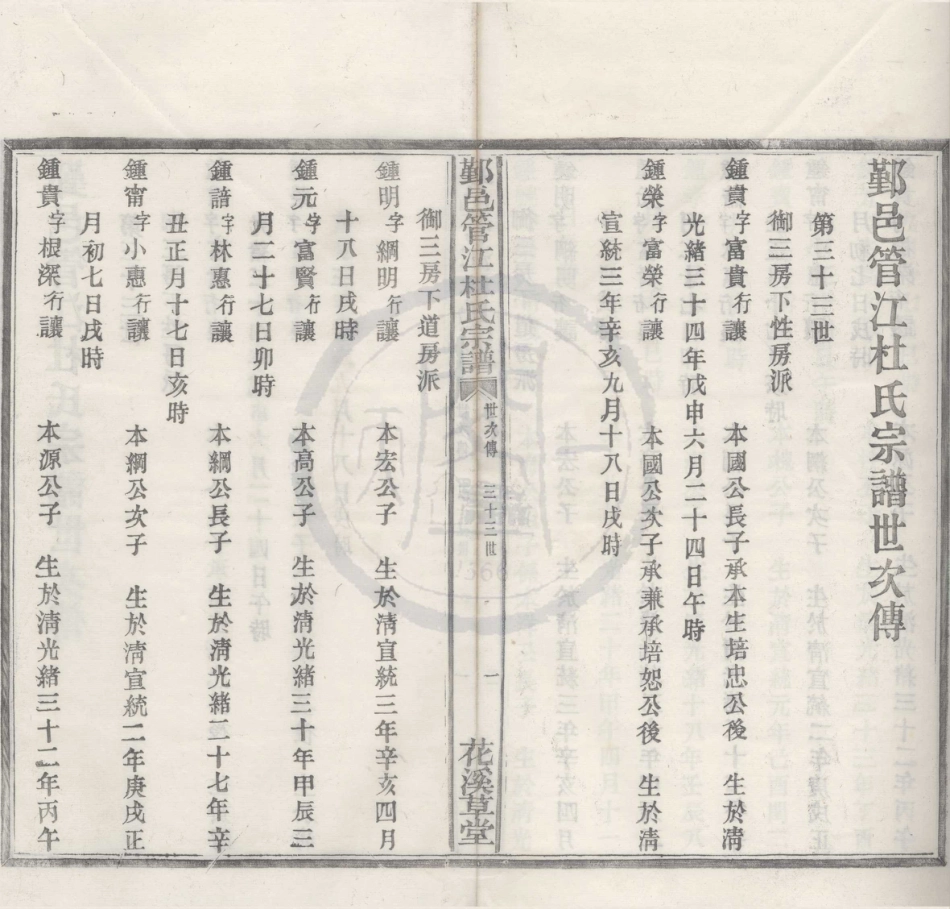 鄞邑管江杜氏宗譜世次傳
第三十三世
御三房下性房派
鍾貴字富貴行讓 本國公長子承本生培忠公後 生於清
光緒三十四年戊申六月二十四日午時
鍾榮字富榮行讓 本國公次子承兼承培恕公後 生於清
宣統三年辛亥九月十八日戌時
鄞邑管江杜氏宗譜 世次傳 三十三世 一 花溪草堂
御三房下道房派
鍾明字綱明行讓 本宏公子 生於清宣統三年辛亥四月
十八日戌時
鍾元字富賢行讓 本高公子 生於清光緒三十年甲辰三
月二十七日卯時
鍾諳字林惠行讓 本綱公長子 生於清光緒二十七年辛
丑正月十七日亥時
鍾甯字小惠行讓 本綱公次子 生於清宣統二年庚戌正
月初七日戌時
鍾貴字根深行讓 本源公子 生於清光緒三十二年丙午